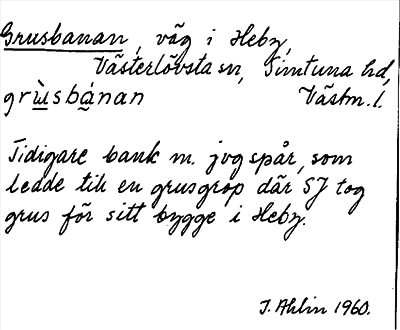 Grusbanan, väg i Heby,
Västerlövsta sn, Simtuna hd,
grùsbànan Västm. l.
Tidigare bank m. jvgspår, som
ledde till en grusgrop där SJ tog
grus för sitt bygge i Heby.
J. Ahlin 1960.